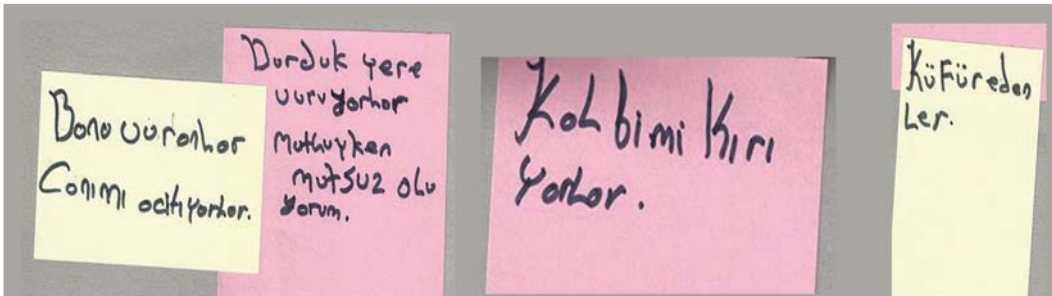 Bana vuranlar
Canımı acıtıyorlar.
Durduk yere
vuruyorlar
Mutluyken
mutsuz olu
yorum.
Kalbimi Kırı
Yorlar.
Küfüreden
Ler.